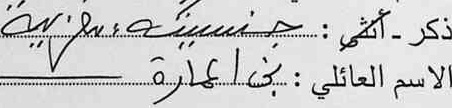 ذكر - أنثى : جنسيته : مغربية
الاسم العائلي : بنى اعمارة